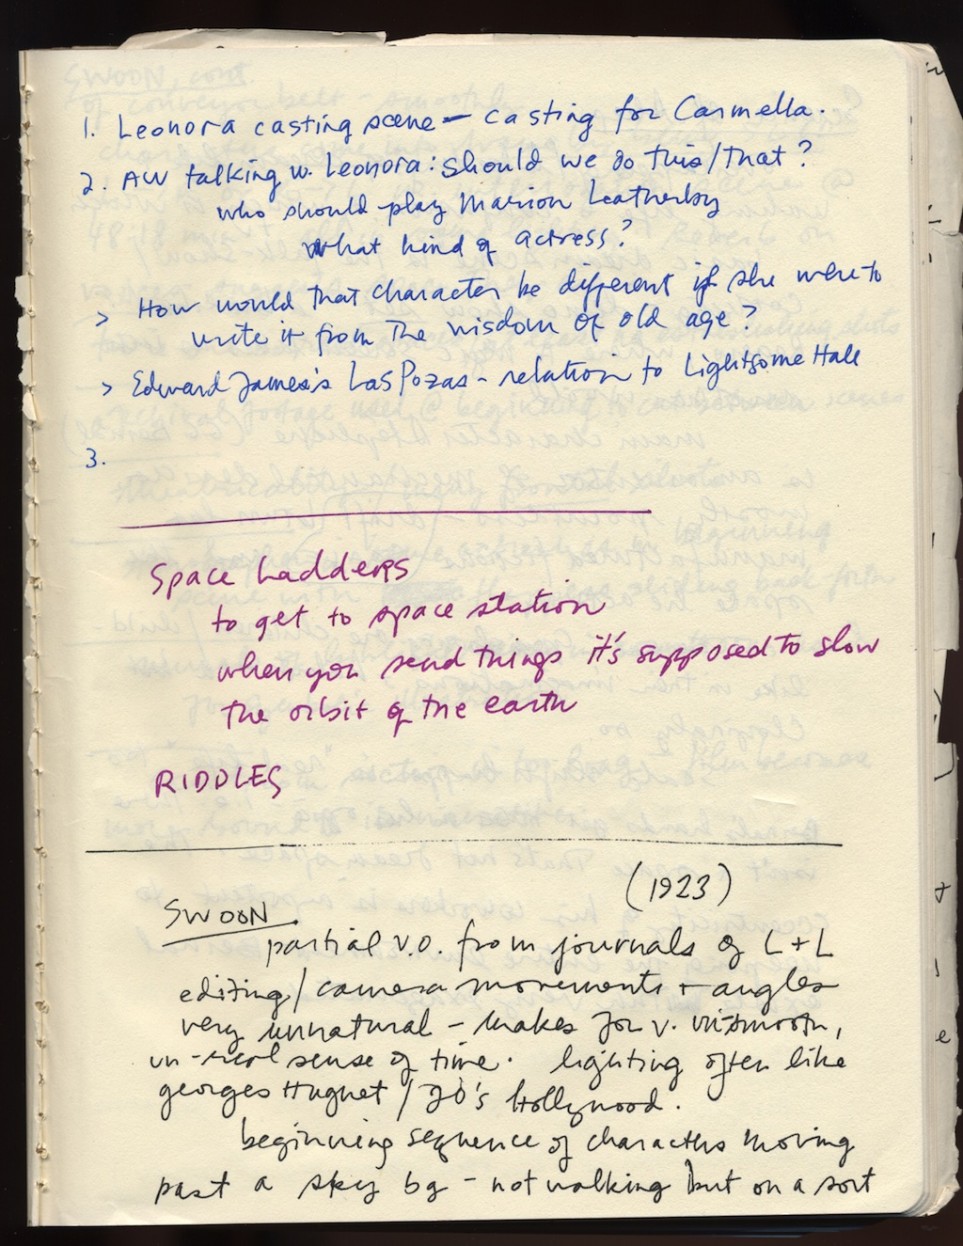 1. Leonora casting scene – casting for Carmella.
2. AW talking w. Leonora: should we do this/that?
who should play Marion Leatherby
what kind of actress?
> How would that character be different if she were to
write it from the wisdom of old age?
> Edward James's Las Pozas - relation to Lightsome Hall
3.
Space Ladders
to get to space station
when you send things it's supposed to slow
the orbit of the earth
RIDDLES
(1923)
SWOON
partial v.o. from journals of L + L
editing/camera movements + angles
very unnatural – makes for v. unsmooth,
un-real sense of time. lighting often like
georges Hugnet / 20's hollywood.
beginning sequence of characters moving
past a sky bg – not walking but on a sort